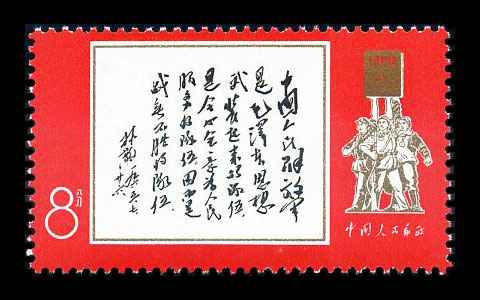 中国人民解放军
是毛泽东思想
武装起来的队伍，
是全心全意为人民
服务的队伍，因而是
战无不胜的队伍。
林彪 一九六五、七、廿六
8分
中国人民邮政